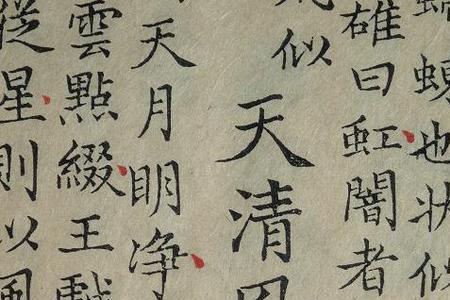 蜺也狀似
雄曰虹闇者
似
天清
天月明净
雲點綴王戲
從星則以風